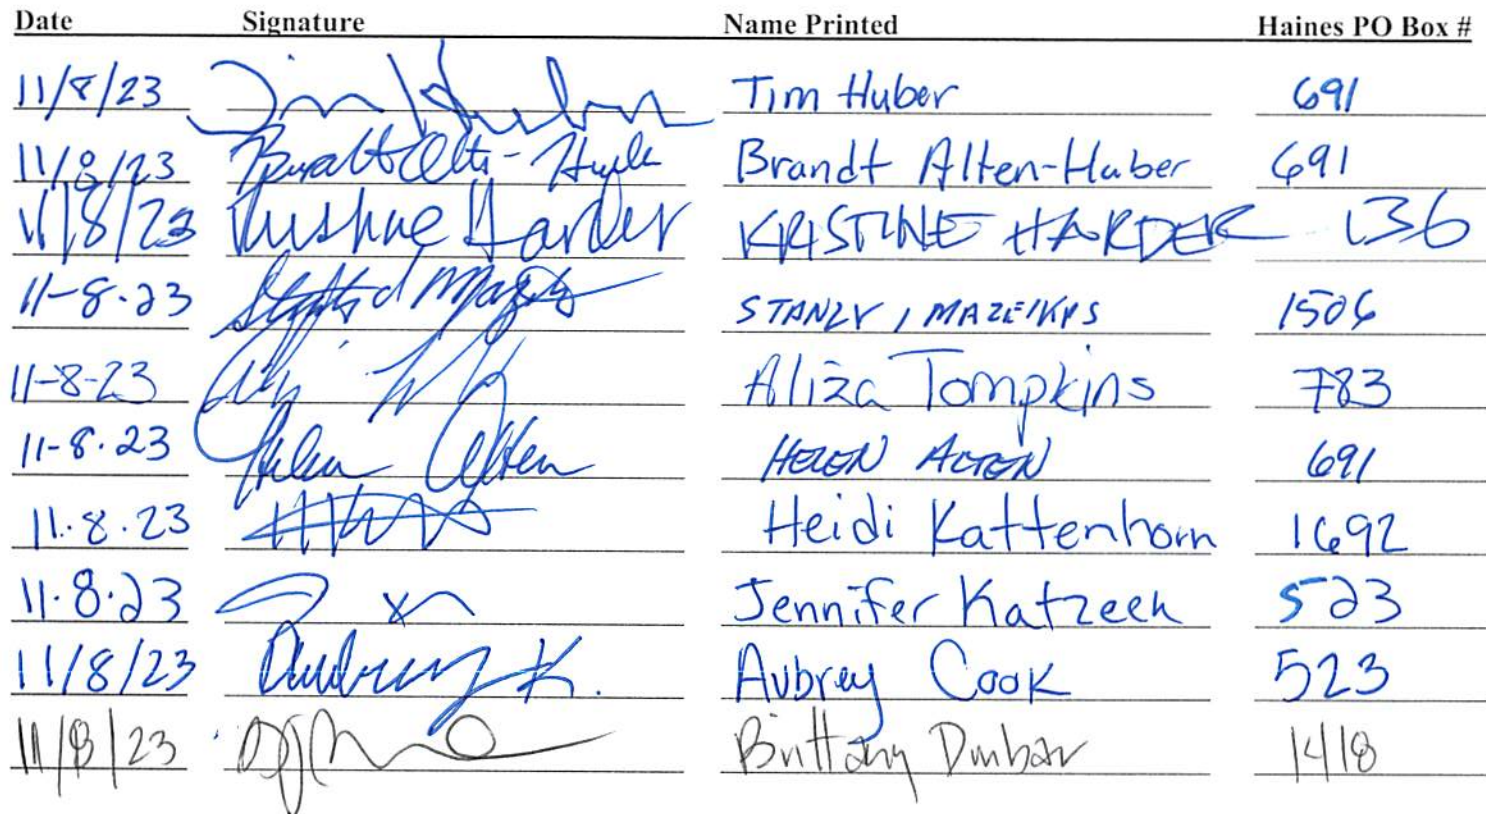 Date Signature Name Printed Haines PO Box #
11/8/23 Tim Huber Tim Huber 691
11/8/23 Brandt Alten-Huber Brandt Alten-Huber 691
11/8/23 Kristine Harder KRISTINE HARDER 136
11-8-23 STANLY J MAZEIKAS 1506
11-8-23 Aliza Tompkins 783
11-8-23 Helen Alten HELEN ALTEN 691
11.8.23 Heidi Kattenhorn 1692
11.8.23 Jennifer Katzeek 523
11/8/23 Aubrey K. Aubrey Cook 523
11/8/23 Brittany Dunbar 1418